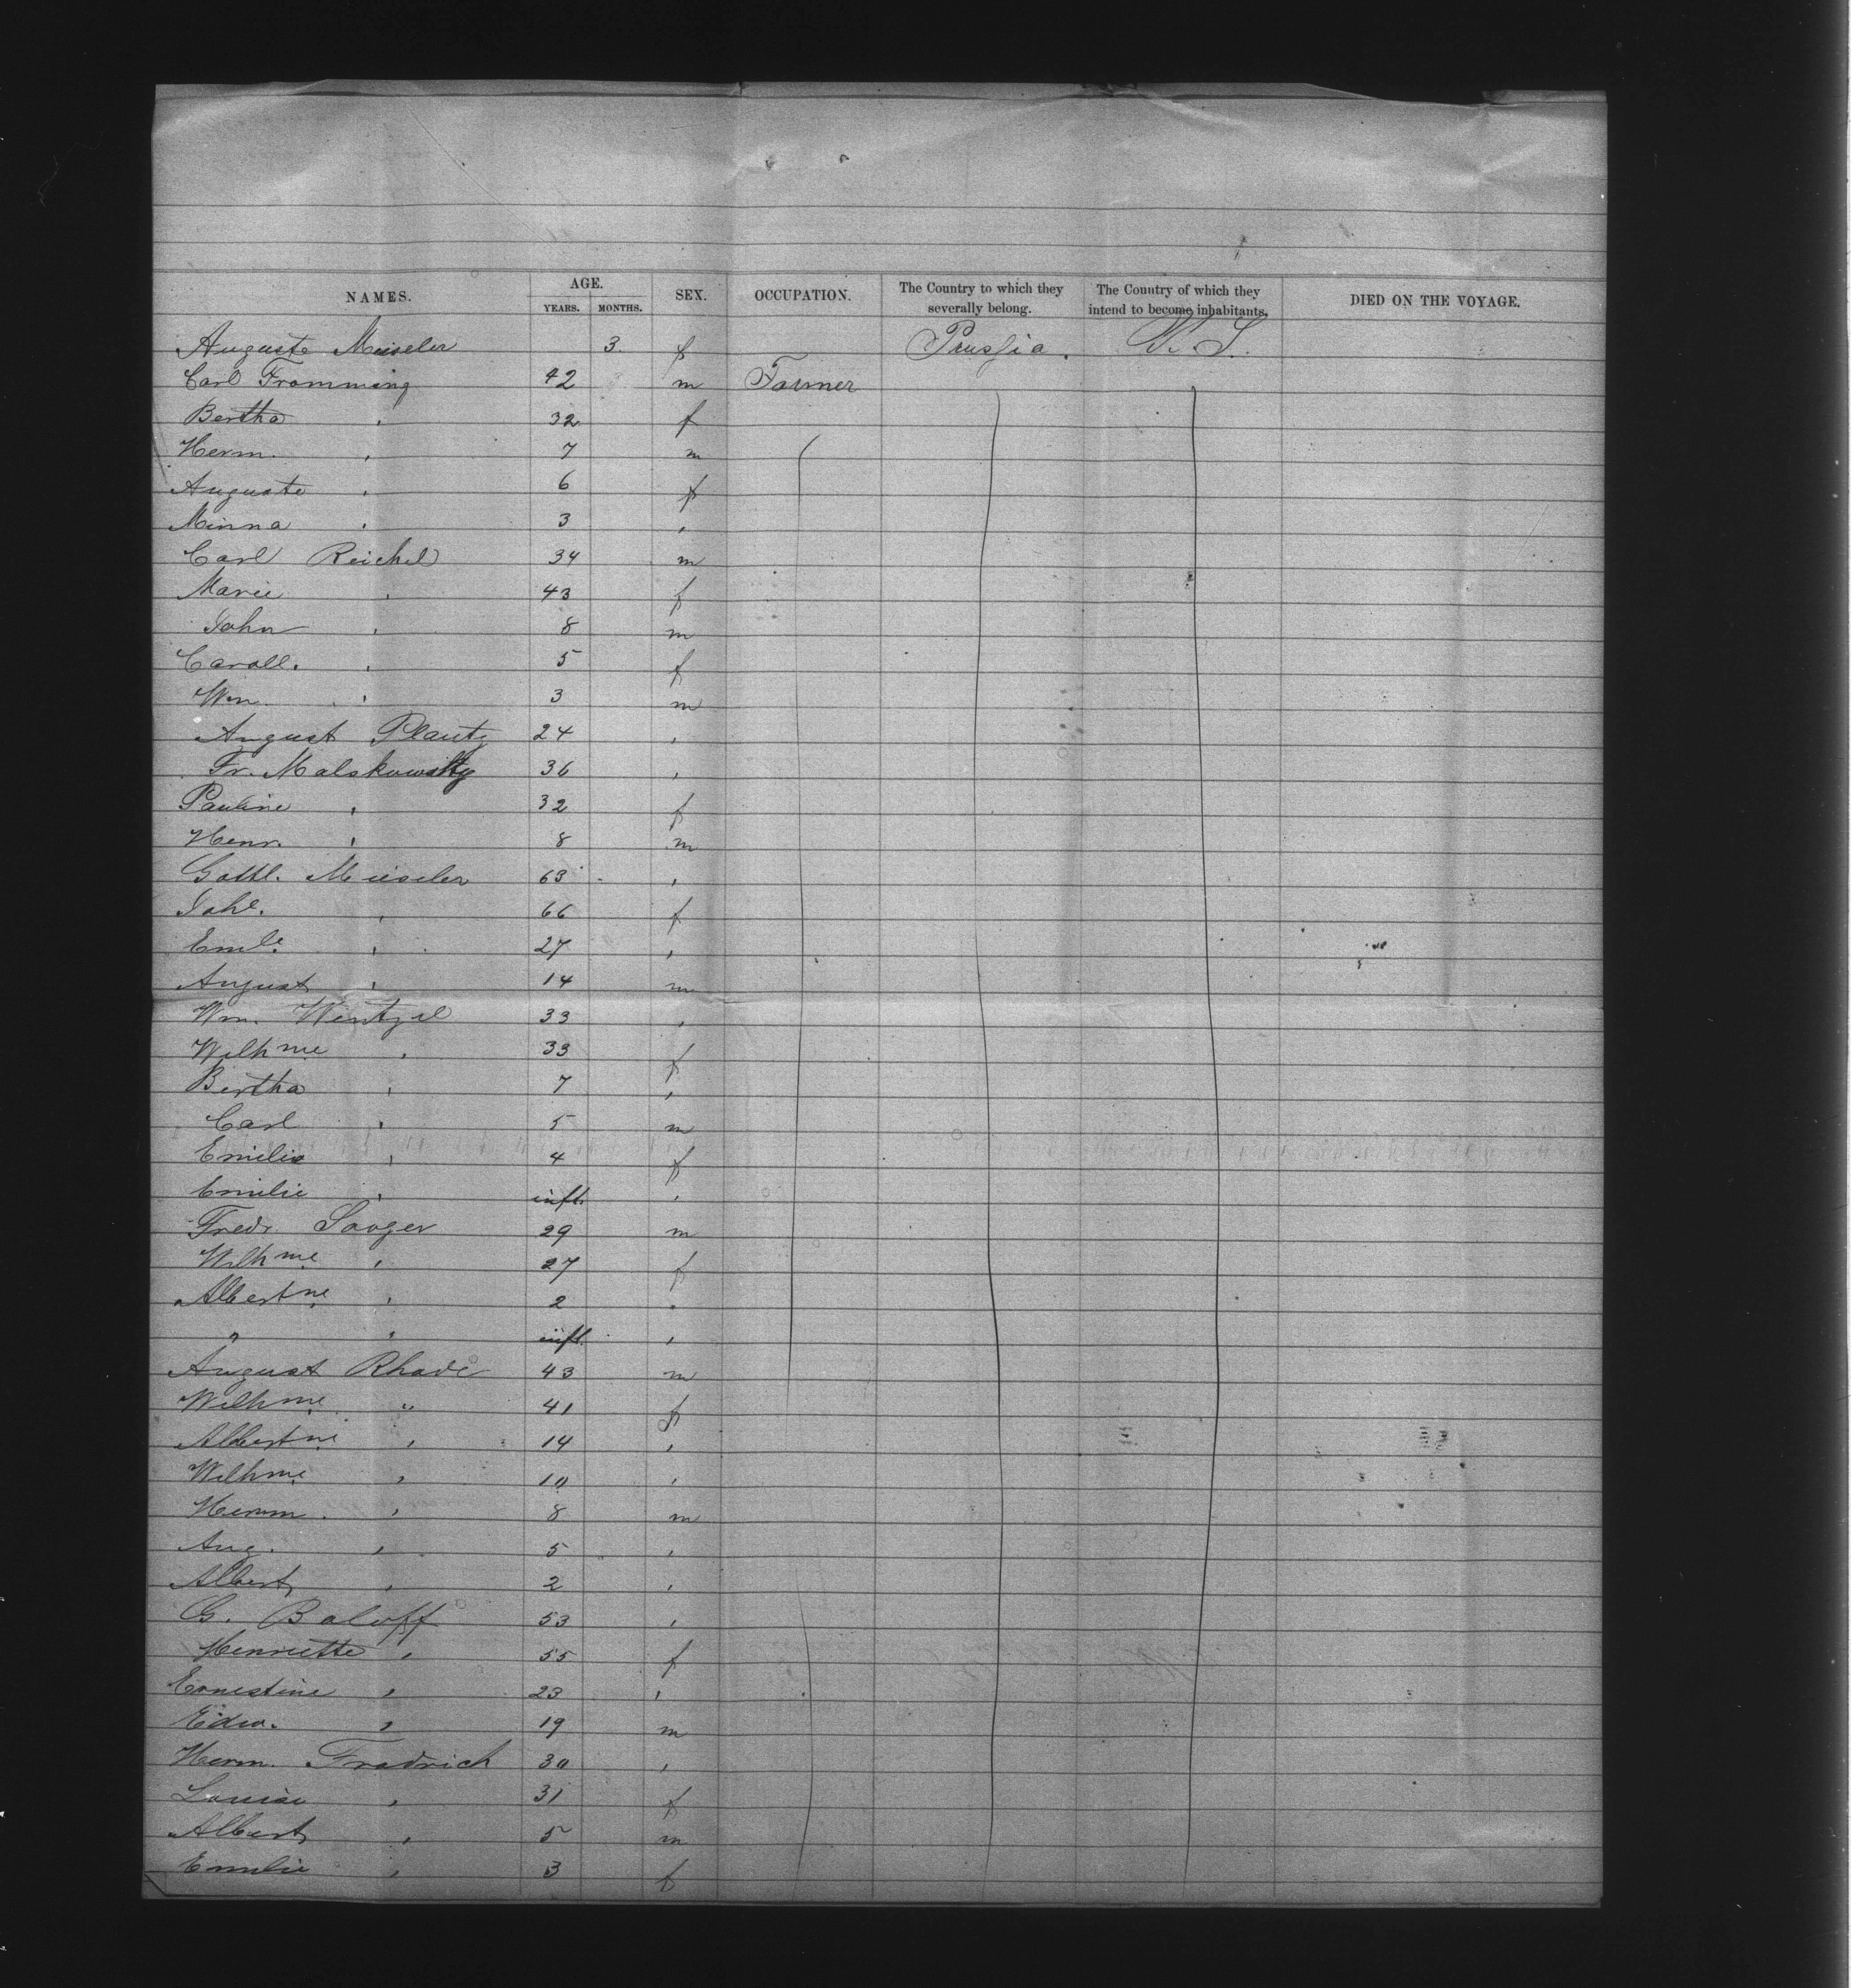 NAMES. AGE. YEARS. MONTHS. SEX. OCCUPATION. The Country to which they severally belong. The Country of which they intend to become inhabitants. DIED ON THE VOYAGE.
Auguste Meiseler 3. f Prussia. U. S.
Carl Fromming 42 m Farmer
Bertha " 32 f
Herm. " 7 m
Auguste " 6 f
Minna " 3 "
Carl Reichel 34 m
Marie " 43 f
John " 8 m
Caroll. " 5 f
Wm. " 3 m
August Plautz 24 "
Fr. Malskowsky 36 "
Pauline " 32 f
Henr. " 8 m
Gottl. Meiseler 63 "
Johe. " 66 f
Emle. " 27 "
August " 14 m
Wm. Wentzel 33 "
Wilhme " 33 f
Bertha " 7 "
Carl " 5 m
Emilie " 4 f
Emilie " inft. "
Fredr. Saager 29 m
Wilhme " 27 f
Albertne " 2 "
" " inft. "
August Rhode 43 m
Wilhme " 41 f
Albertne " 14 "
Wilhme " 10 "
Herm. " 8 m
Aug. " 5 "
Albert " 2 "
G. Baloff 53 "
Henriette " 55 f
Ernestine " 23 "
Edw. " 19 m
Herm. Fradrich 30 "
Louise " 31 f
Albert " 5 m
Emilie " 3 f